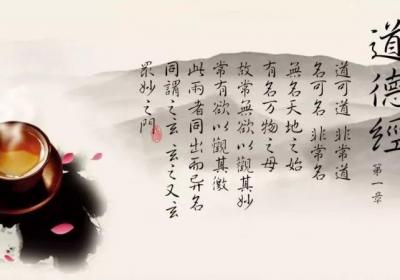 道德經
第一章
道可道 非常道
名可名 非常名
無名天地之始
有名万物之母
故常無欲以觀其妙
常有欲以觀其徼
此兩者同出而异名
同謂之玄 玄之又玄
眾妙之門